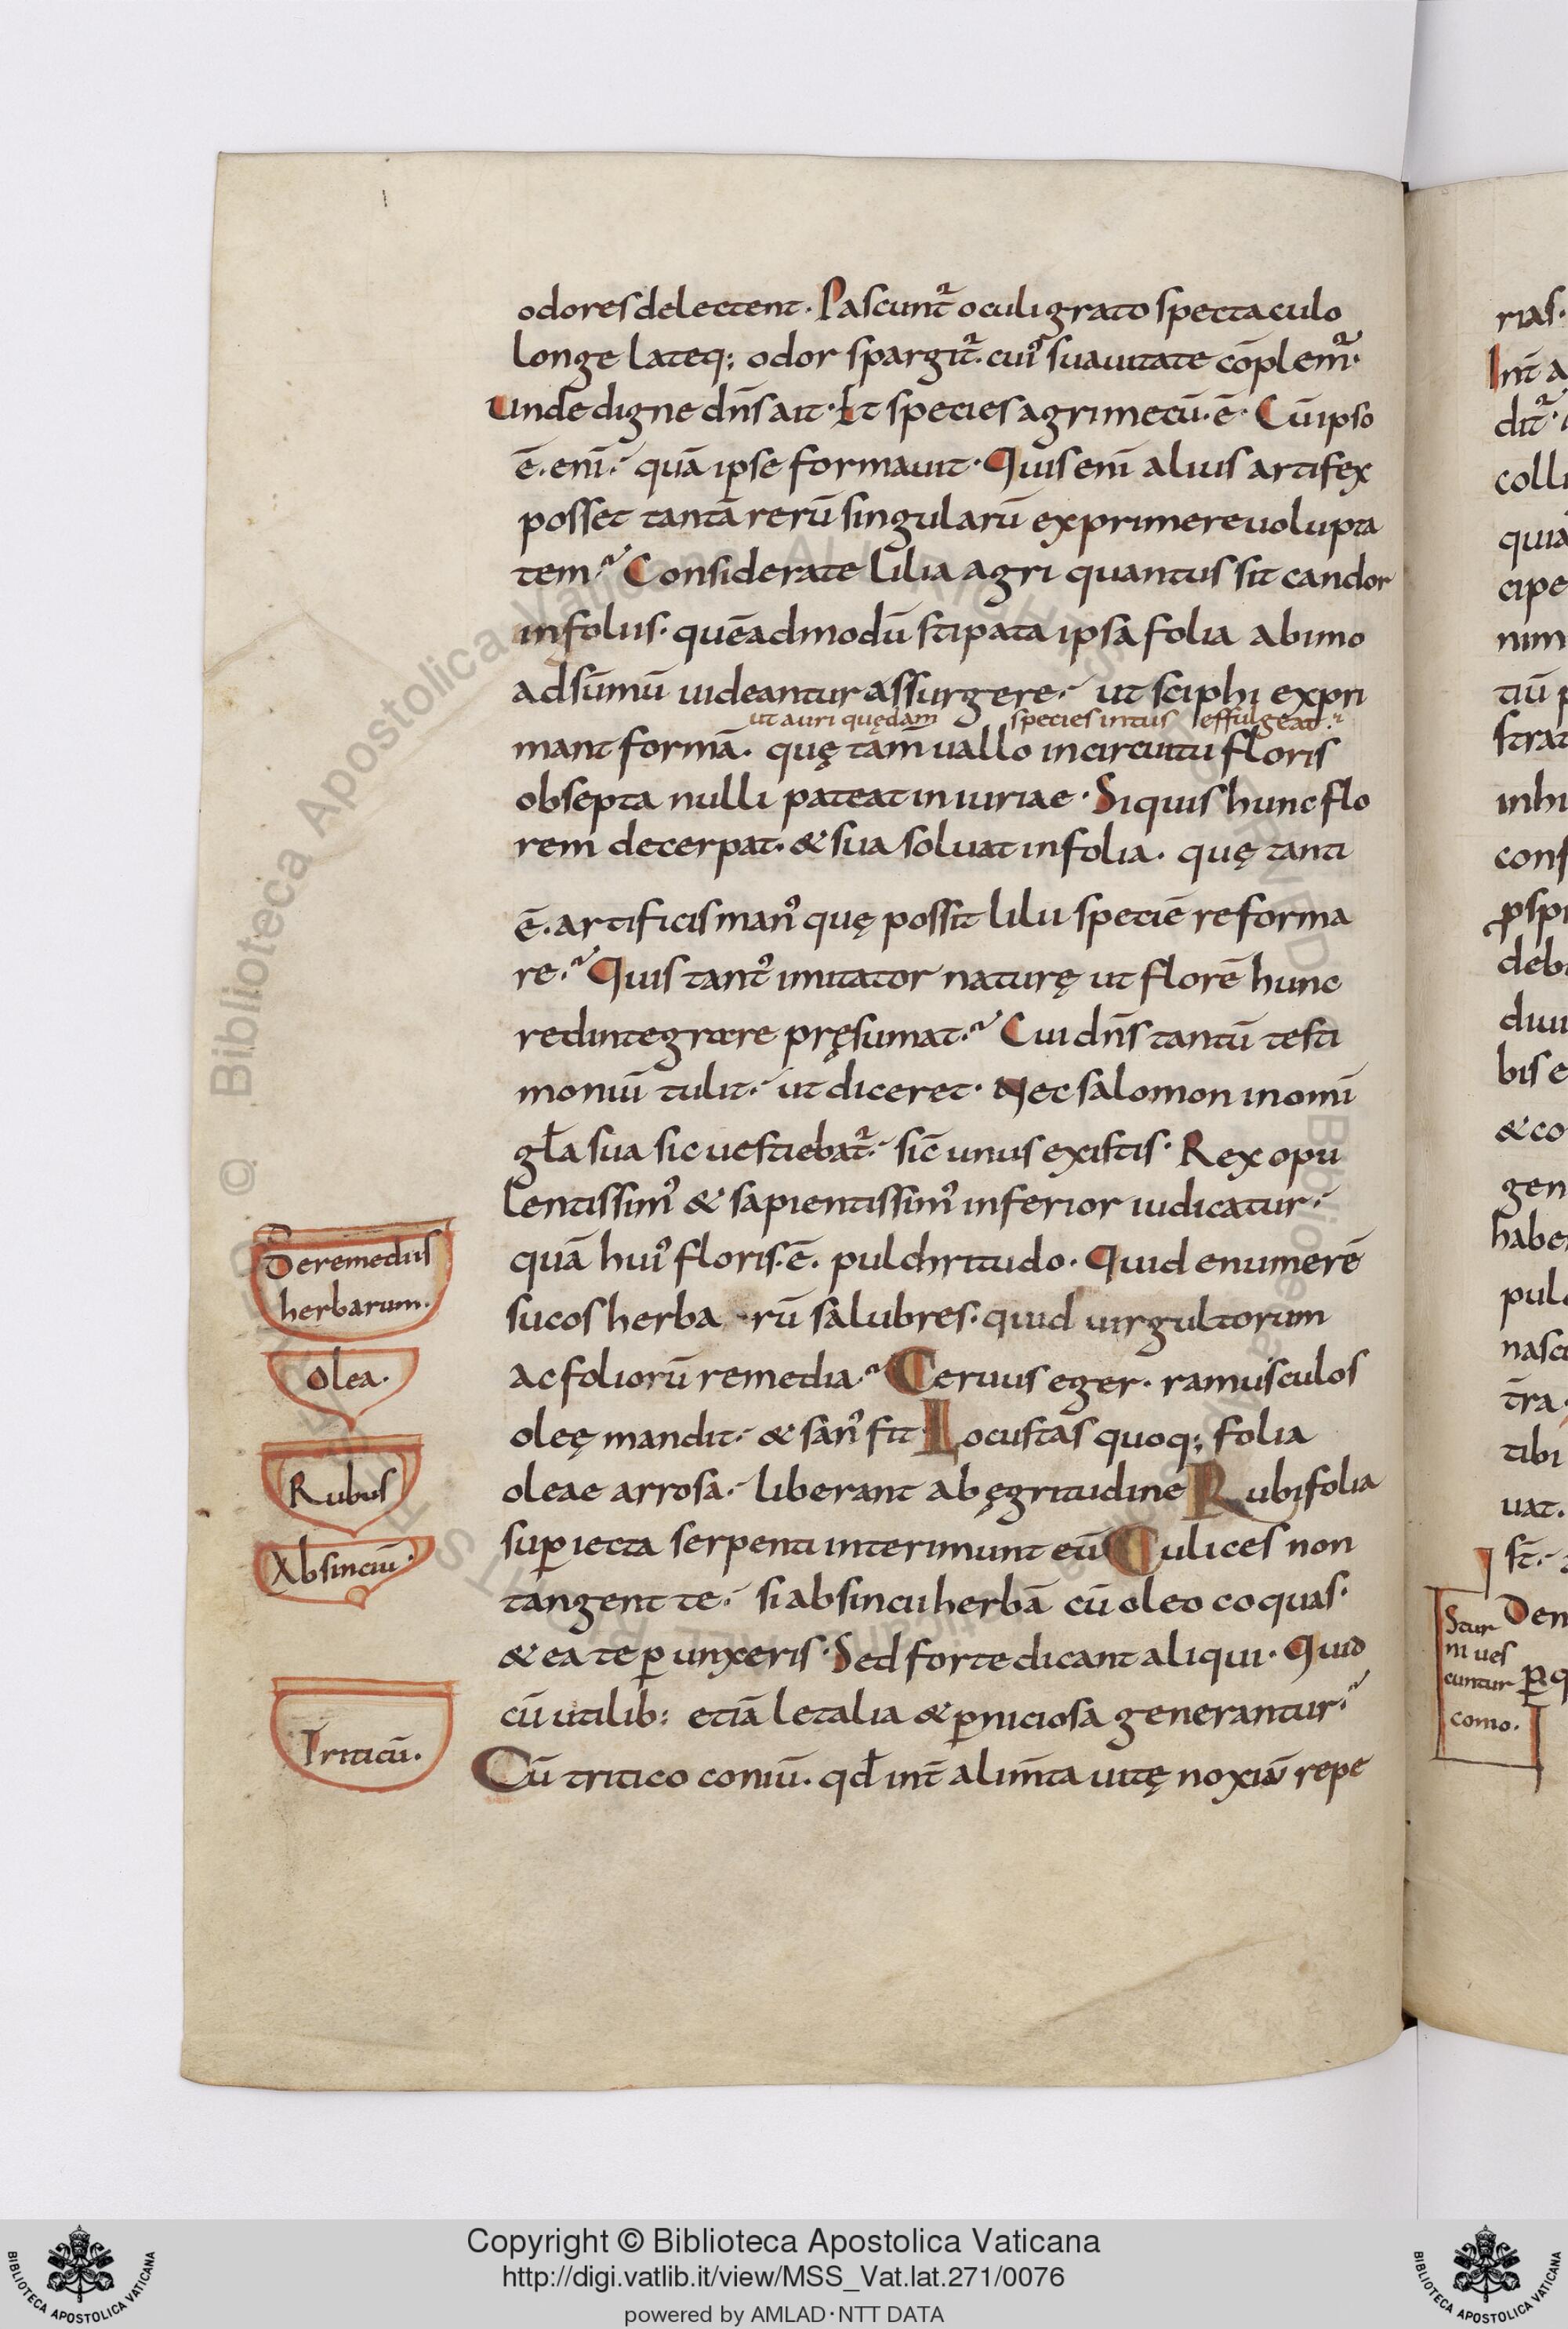 odores delectent. Pascunt᷑ oculi grato spectaculo
longe lateq; odor spargit᷑. cui᾽ suauitate cōplem᷑.
Unde digne dn̄s ait. Et species agri mecū. ē. Cū ipso
ē. enī. quā ipse formauit. Quis enī alius artifex
posset tantā rerū singularū exprimere uolupta
tem? Considerate lilia agri quantus sit candor
in foliis. quēadmodū stipata ipsa folia ab imo
ad sūmū uideantur assurgere. ut sciphi expri
ut auri quędam species intus effulgeat.
mant formā. quę tam̄ uallo in circuitu floris
obsepta nulli pateat iniuriae. Si quis hunc flo
rem decerpat. & sua soluat in folia. quę tanti
ē. artificis man᾽ quę possit lilii speciē reforma
re? Quis tant᾽ imitator naturę ut florē hunc
redintegrare pręsumat? Cui dn̄s tantū testi
moniū tulit. ut diceret. Nec salomon in omī
gl̄a sua sic uestiebat᷑. sic̄ unus ex istis. Rex opu
lentissim᾽ & sapientissim᾽ inferior iudicatur.
quā hui᾽ floris. ē. pulchritudo. Quid enumerē
sucos herba rū salubres. quid uirgultorum
ac foliorū remedia? Ceruus eger. ramusculos
oleę mandit. & san᾽ fit. Locustas quoq; folia
oleae arrosa. liberant ab ęgritudine. Rubi folia
suꝑiecta serpenti interimunt eū. Culices non
tangent te. si absincii herbā cū oleo coquas.
& ea te ꝑunxeris. Sed forte dicant aliqui. Quid
cū utilib; etiā letalia & ꝑniciosa generantur?
Cū tritico coniū. qđ int̄ alim̄ta uitę noxiū repe
De remediis
herbarum.
Olea.
Rubus
Absinciū.
Triticū.
rias.
Int̄ a
dit᷑.
colli
quia
cipe
nim
tiū p
strat
inhi
cons
ꝓspi
deb
diui
bis e
& co
gen
habe
pulc
nasc
t̄ra.
tibi
uat.
st̄.
Den
ꝑ q
Stur
ni ues
cuntur
como.
© Biblioteca Apostolica Vaticana ALL RIGHTS RESERVED
© Biblioteca Apostolica Vaticana ALL RIGHTS RESERVED
BIBLIOTECA APOSTOLICA VATICANA
Copyright © Biblioteca Apostolica Vaticana
http://digi.vatlib.it/view/MSS_Vat.lat.271/0076
powered by AMLAD·NTT DATA
BIBLIOTECA APOSTOLICA VATICANA